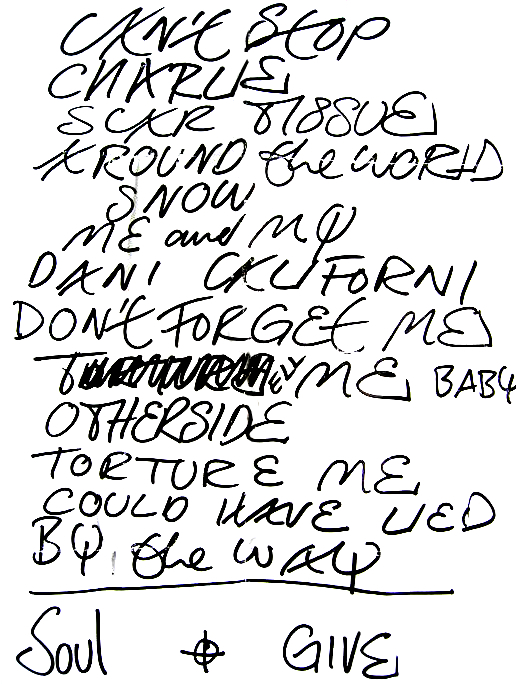 CAN'T STOP
CHARLIE
SCAR TISSUE
AROUND the WORLD
SNOW
ME and MY
DANI CALIFORNI
DON'T FORGET ME
ME BABY
OTHERSIDE
TORTURE ME
COULD HAVE LIED
BY the WAY
Soul GIVE